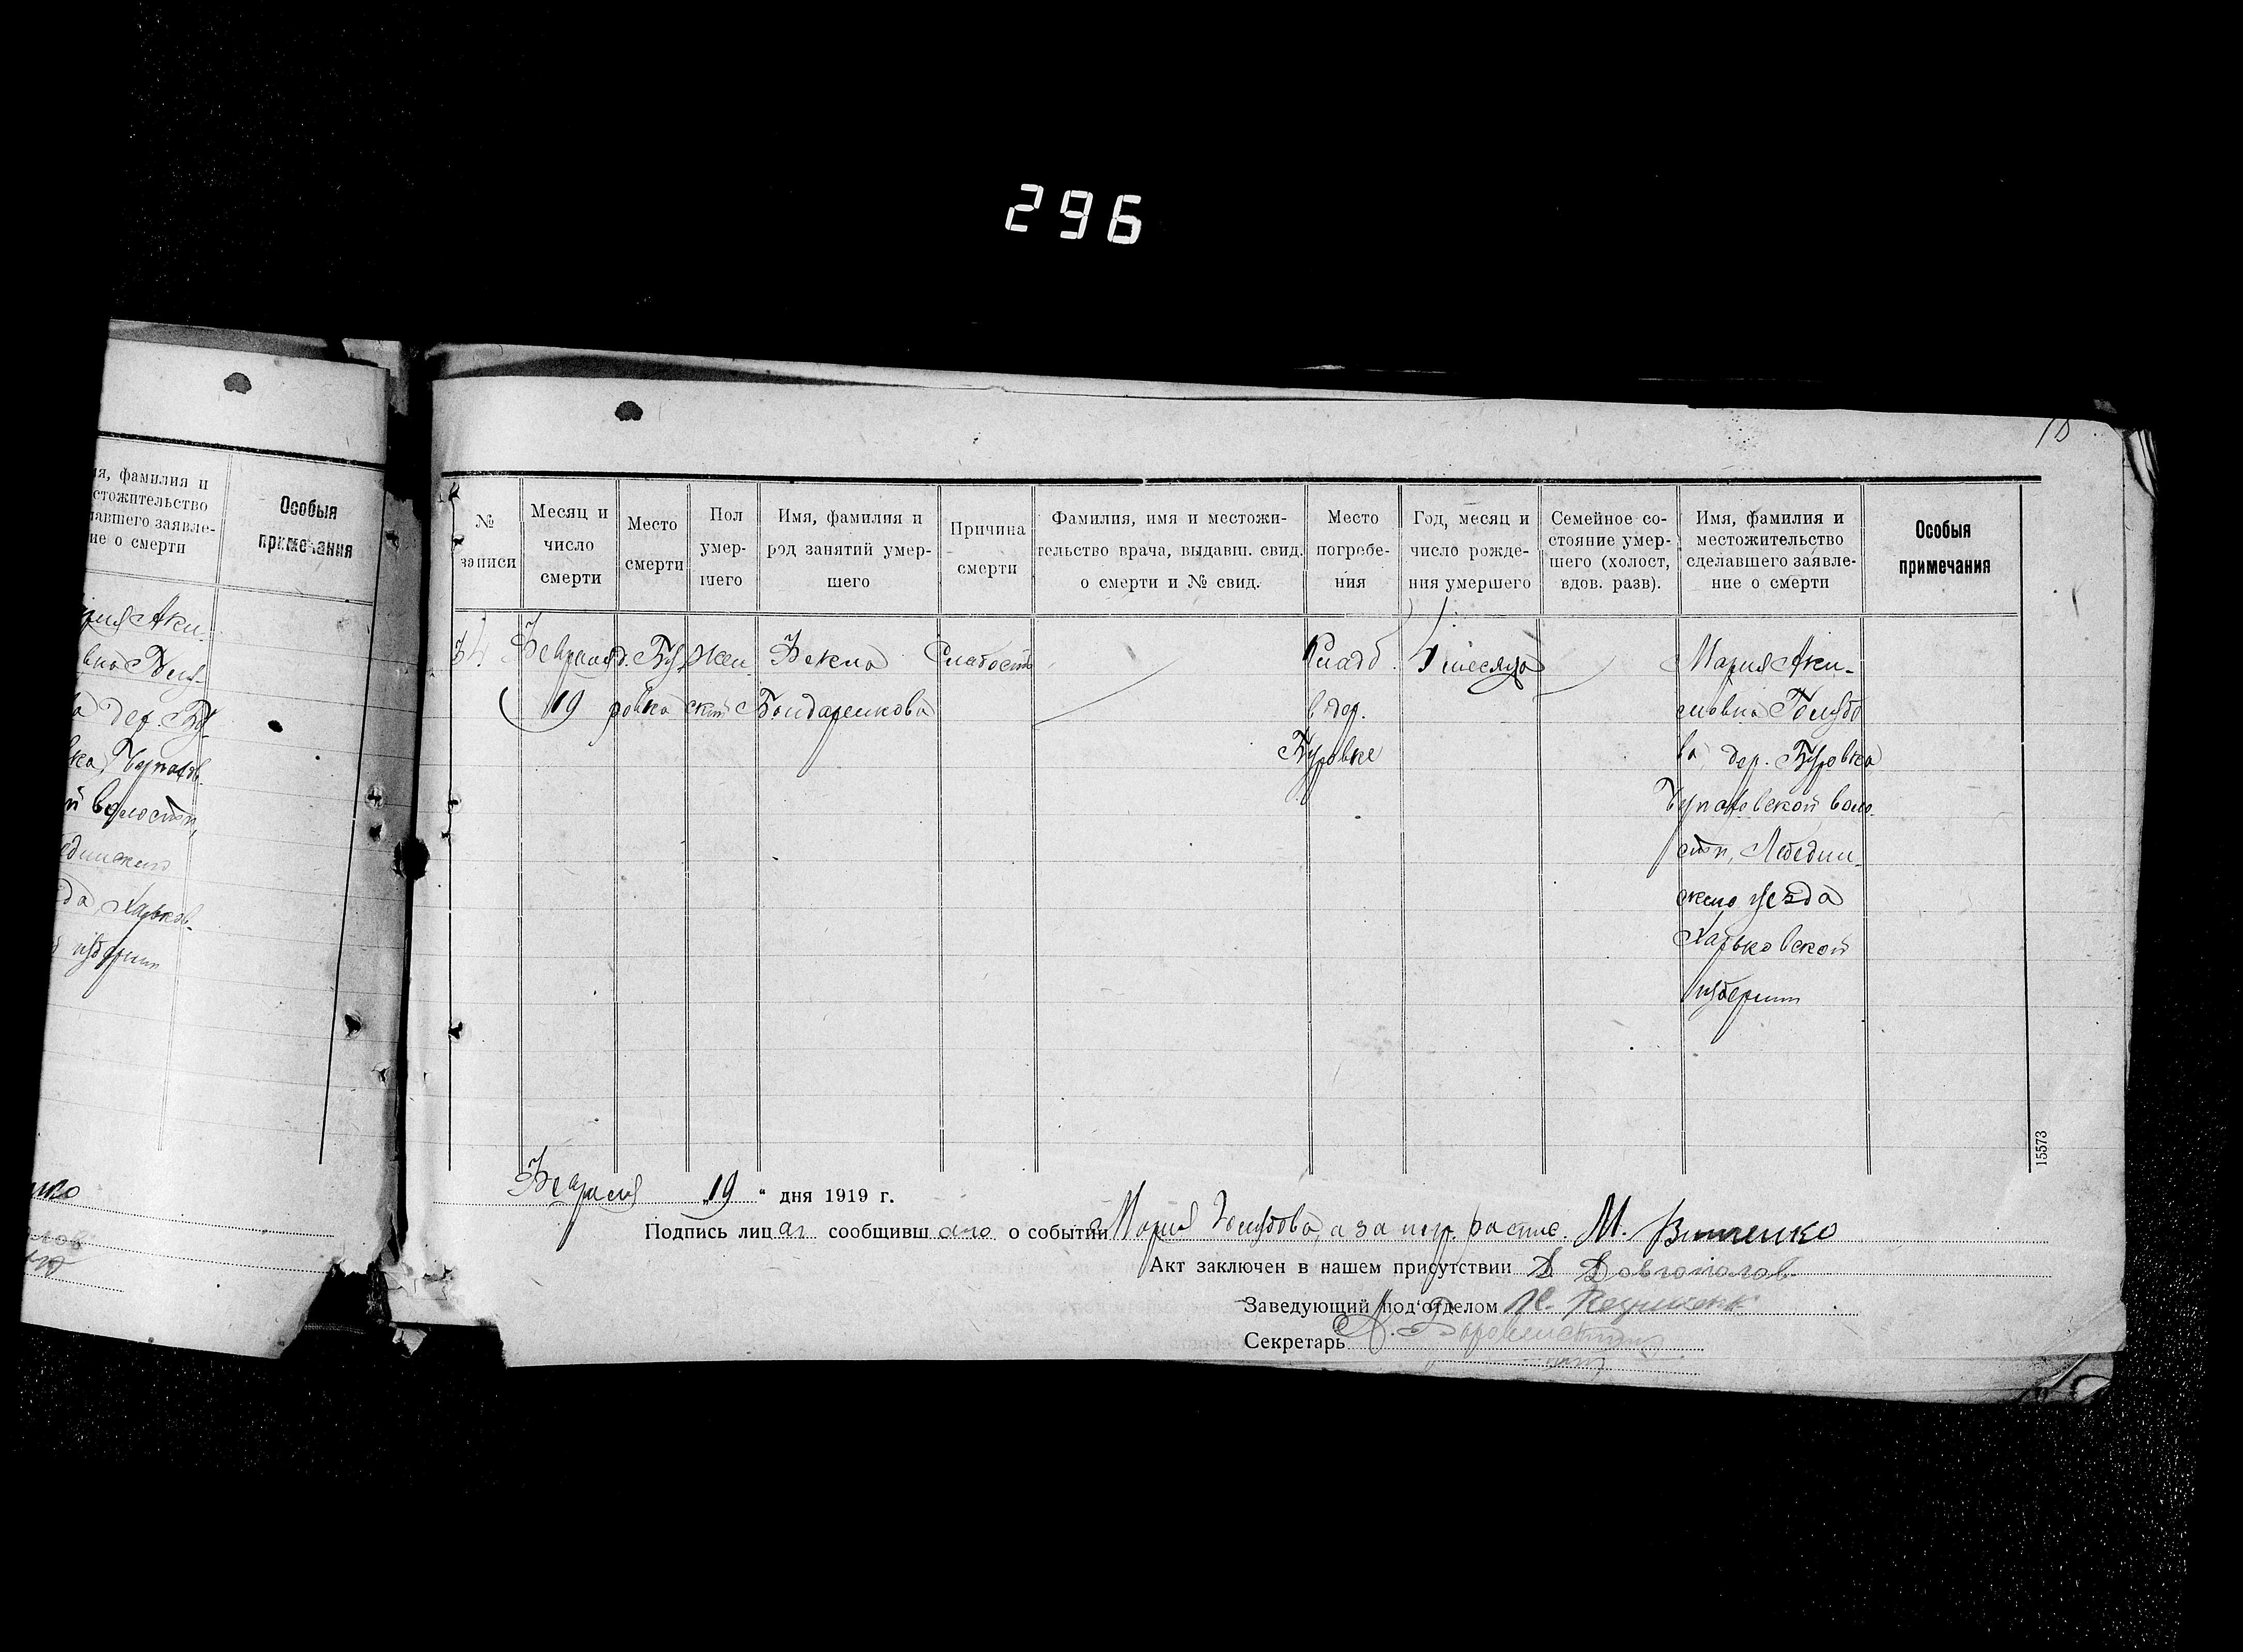 296
18
я, фамилия и
стожительство
лавшего заявле-
ие о смерти
Особыя
примечания
рия Аки-
вна Голу-
а дер. Бу-
ка, Чупахов-
й волости,
единского
да, Харьков-
губернии
№
записи
Месяц и
число
смерти
Место
смерти
Пол
умер-
шего
Имя, фамилия и
род занятий умер-
шего
Причина
смерти
Фамилия, имя и местожи-
тельство врача, выдавш. свид.
о смерти и № свид.
Место
погребе-
ния
Год, месяц и
число рожде-
ния умершего
Семейное со-
стояние умер-
шего (холост,
вдов. разв).
Имя, фамилия и
местожительство
сделавшего заявле-
ние о смерти
Особыя
примечания
34
Февраля
19
д. Бу-
ровка
Жен
ский
Фекла
Бондаренкова
Слабость
Кладб.
в дер.
Буровке
4 месяца
Мария Аки-
мовна Голубо
ва, дер. Буровка
Чупаховской воло-
сти, Лебедин-
скаго уезда
Харьковской
губернии
15573
Февраля „19“ дня 1919 г.
Подпись лиц аг сообщивш аго о событии Мария Голубова, а за негр. распис. М. Витенко
Акт заключен в нашем присутствии Д Довгополов
Заведующий под'отделом
Секретарь